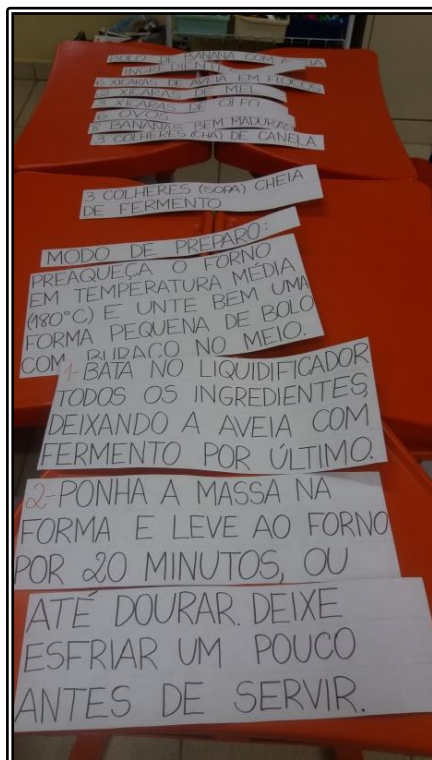 BOLO DE BANANA COM
INGREDIENTES
6 XÍCARAS DE AVEIA EM FLOCOS
XÍCARAS DE MEL
3 XÍCARAS DE ÓLEO
6 OVOS
BANANAS BEM MADURAS
3 COLHERES (CHÁ) DE CANELA
3 COLHERES (SOPA) CHEIA
DE FERMENTO
MODO DE PREPARO:
PREAQUEÇA O FORNO
EM TEMPERATURA MÉDIA
(180°C) E UNTE BEM UMA
FORMA PEQUENA DE BOLO
COM BURACO NO MEIO.
1-BATA NO LIQUIDIFICADOR
TODOS OS INGREDIENTES,
DEIXANDO A AVEIA COM
FERMENTO POR ÚLTIMO.
2-PONHA A MASSA NA
FORMA E LEVE AO FORNO
POR 20 MINUTOS, OU
ATÉ DOURAR. DEIXE
ESFRIAR UM POUCO
ANTES DE SERVIR.